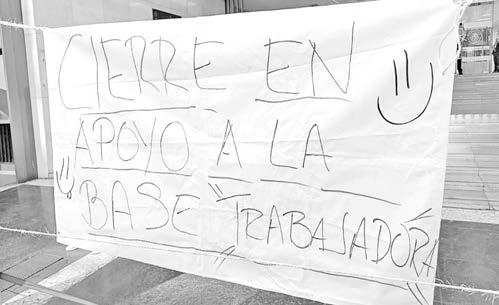 CIERRE EN
APOYO A LA
BASE "TRABAJADORA"